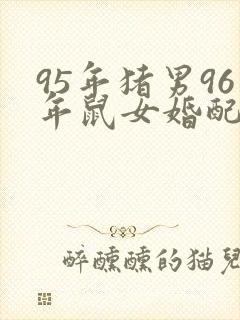 95年猪男96
年鼠女婚配
醉醺醺的猫儿